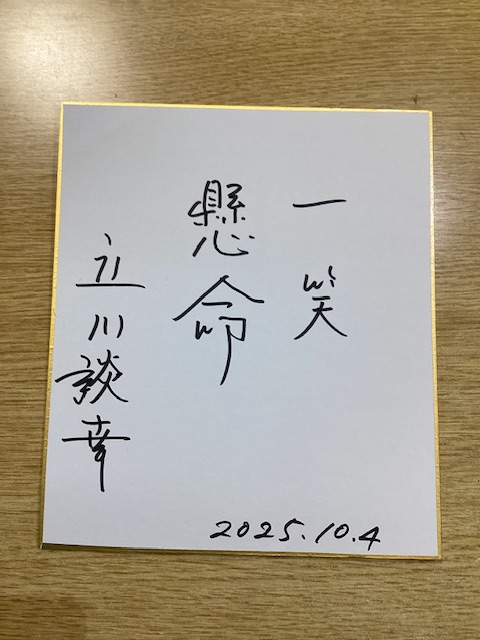 一笑
懸命
立川談幸
2025.10.4